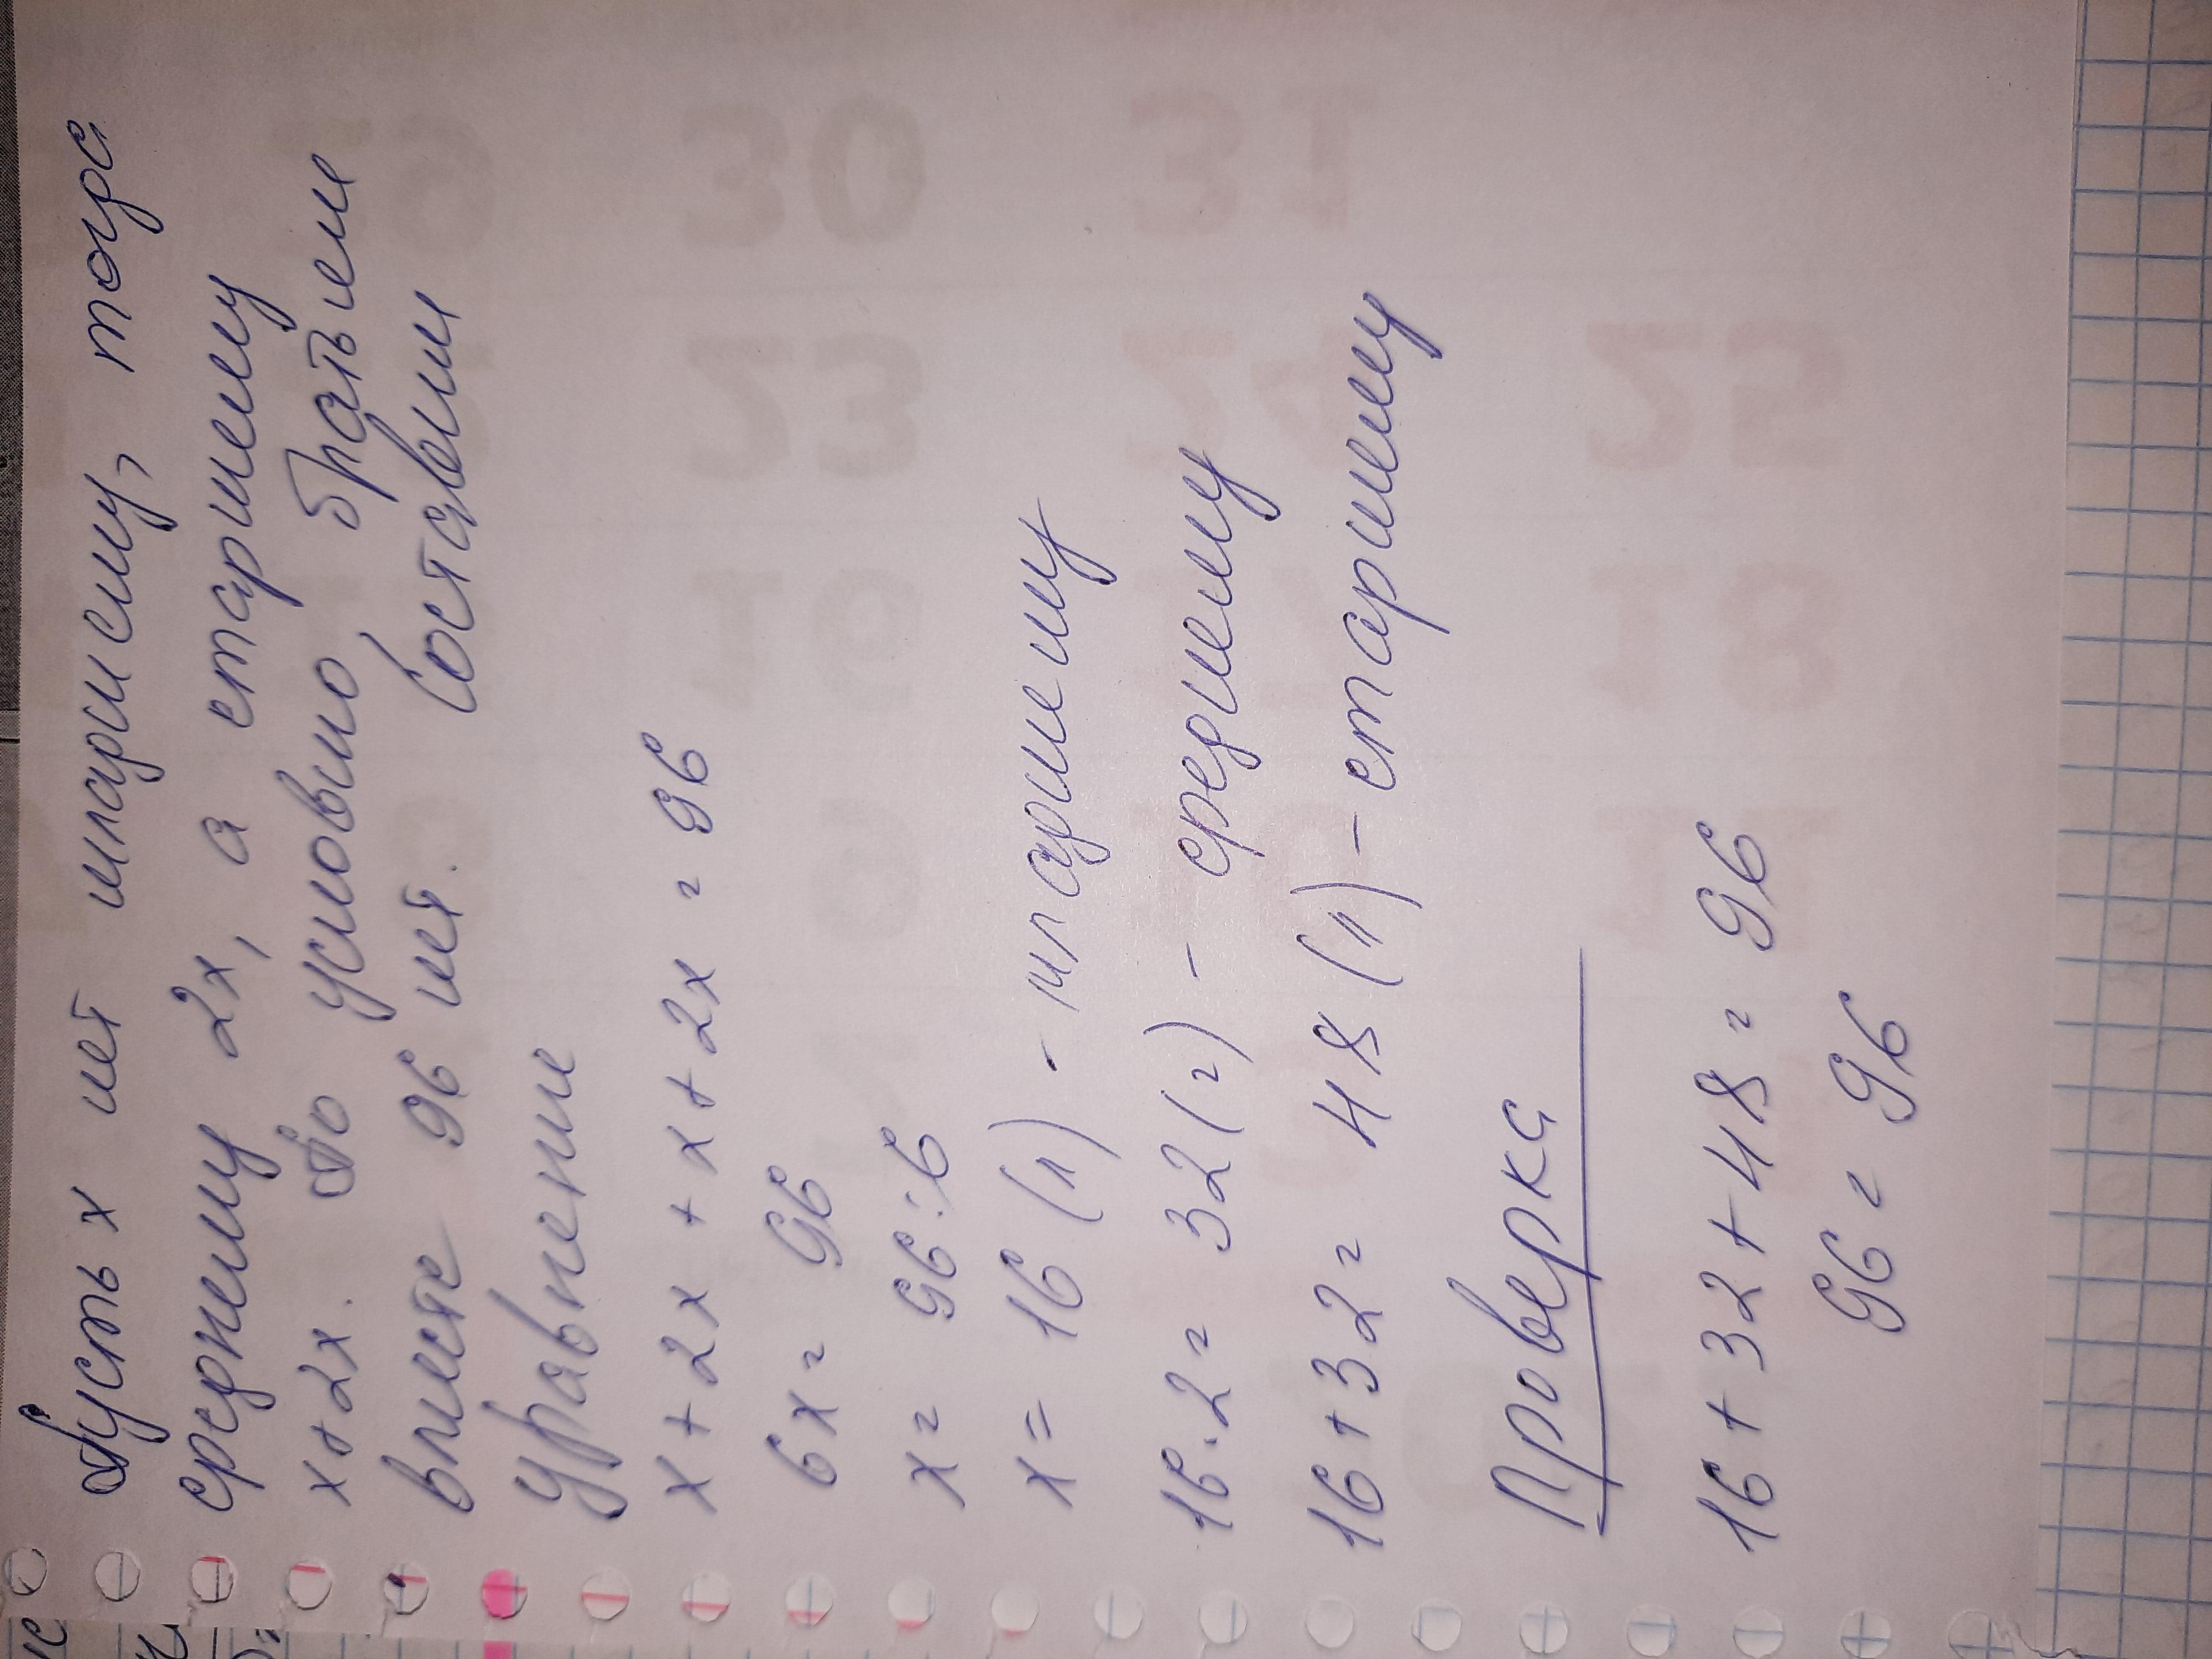 Пусть х лет младшему, тогда
среднему 2х, а старшему
х+2х. По условию, братьем
вместе 96 лет. Составим
уравнение
х + 2х + х + 2х = 96
6х = 96
х = 96:6
х = 16 (л) - младшему
16·2 = 32 (г) - среднему
16+32 = 48 (л) - старшему
Проверка
16 + 32 + 48 = 96
96 = 96
30
31
23
24
25
18